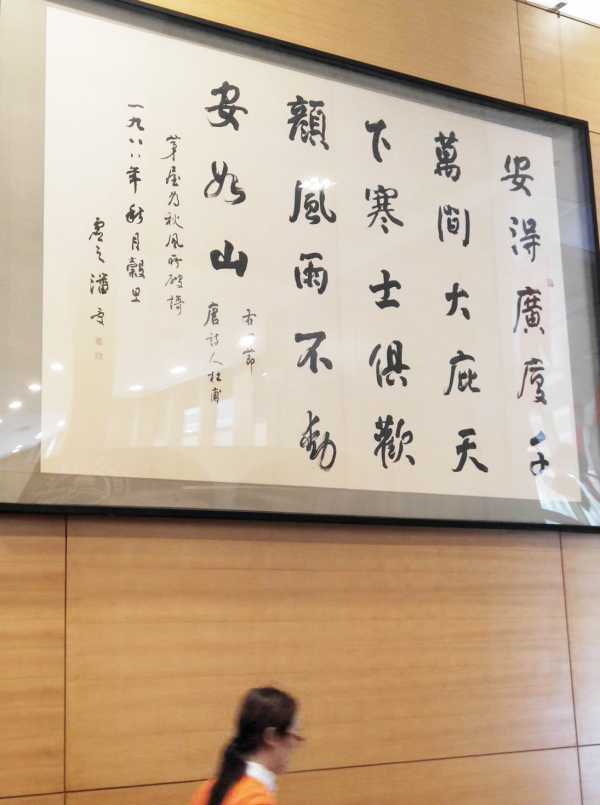 安得廣廈千
萬間大庇天
下寒士俱歡
顏風雨不動
安如山
右一節
唐詩人杜甫
茅屋为秋風所破謌
一九八八年秋月穀旦
虛之潘受